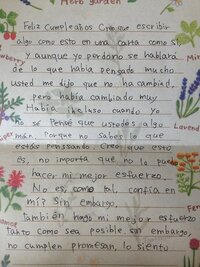 Herb garden
Feliz Cumpleaños Creo que escribir
algo como esto en una carta como si
Y aunque yo perdono se hablará
de lo que había pensado mucho
Usted me dijo que no ha cambiad,
pero había cambiado muy
Había incluso cuando yo
no sé Pensé que ustedes algo
mán. Porque no saber lo que
estás penssando Creo que esto
és, no importa que no lo pueda
hacer mi mejor esfuerzo.
No es, como tal, confía en
mí? Sin embargo,
también hago mi mejor esfuerzo
tanto como sea posible, sin embargo,
no cumplen promesan, lo siento